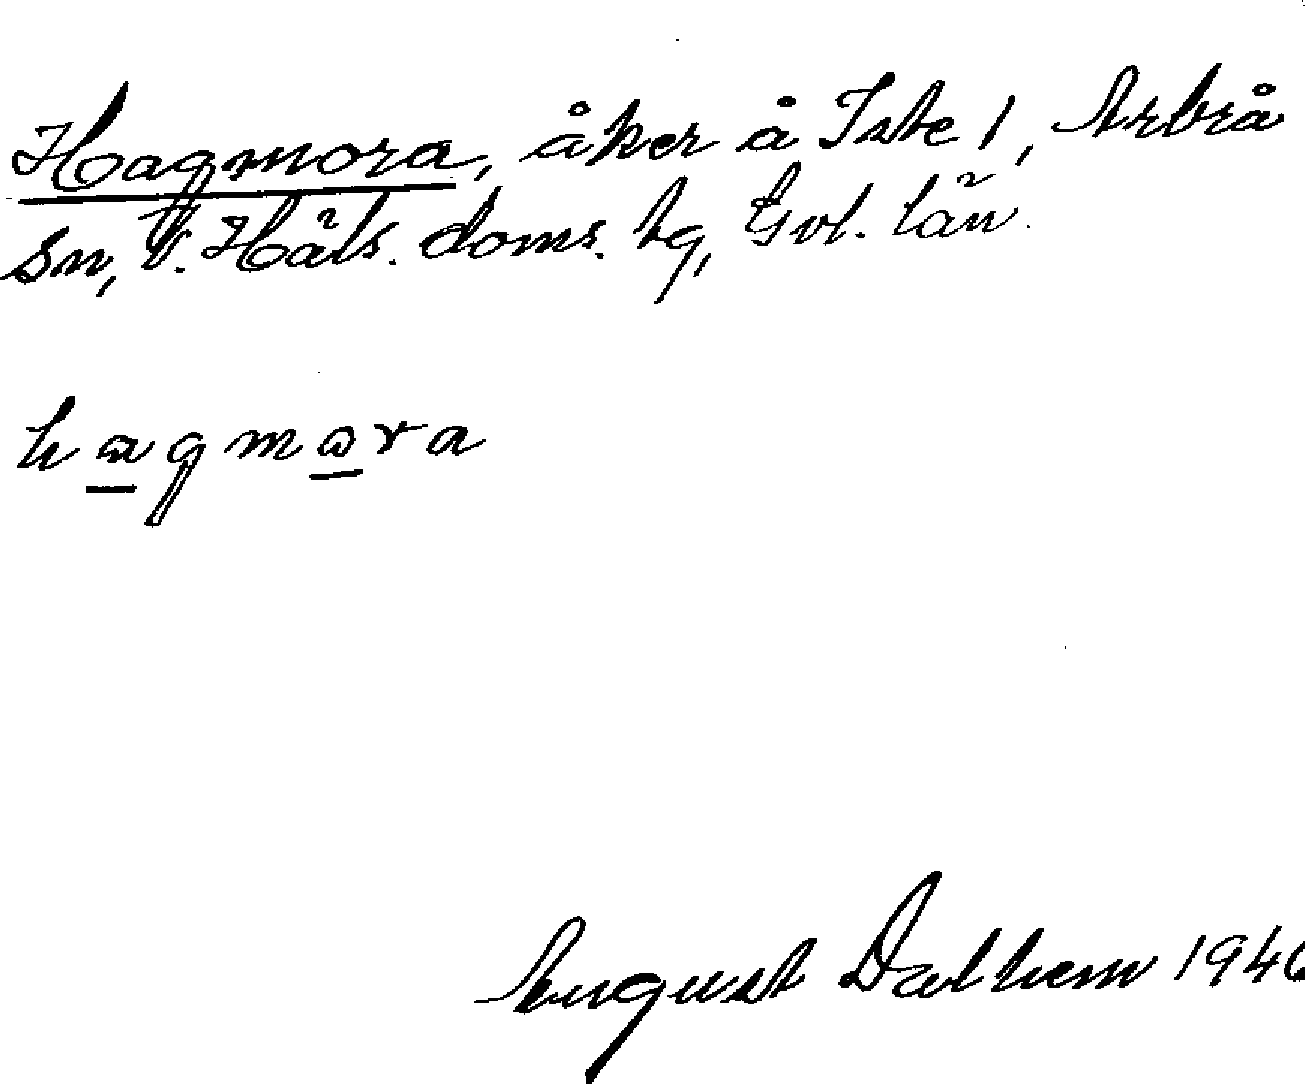 Hagmora, åker å Iste 1, Arbrå
sn, V. Häls. doms. tg, Gvl. län.
hagmɷra
August Dalhem 1940